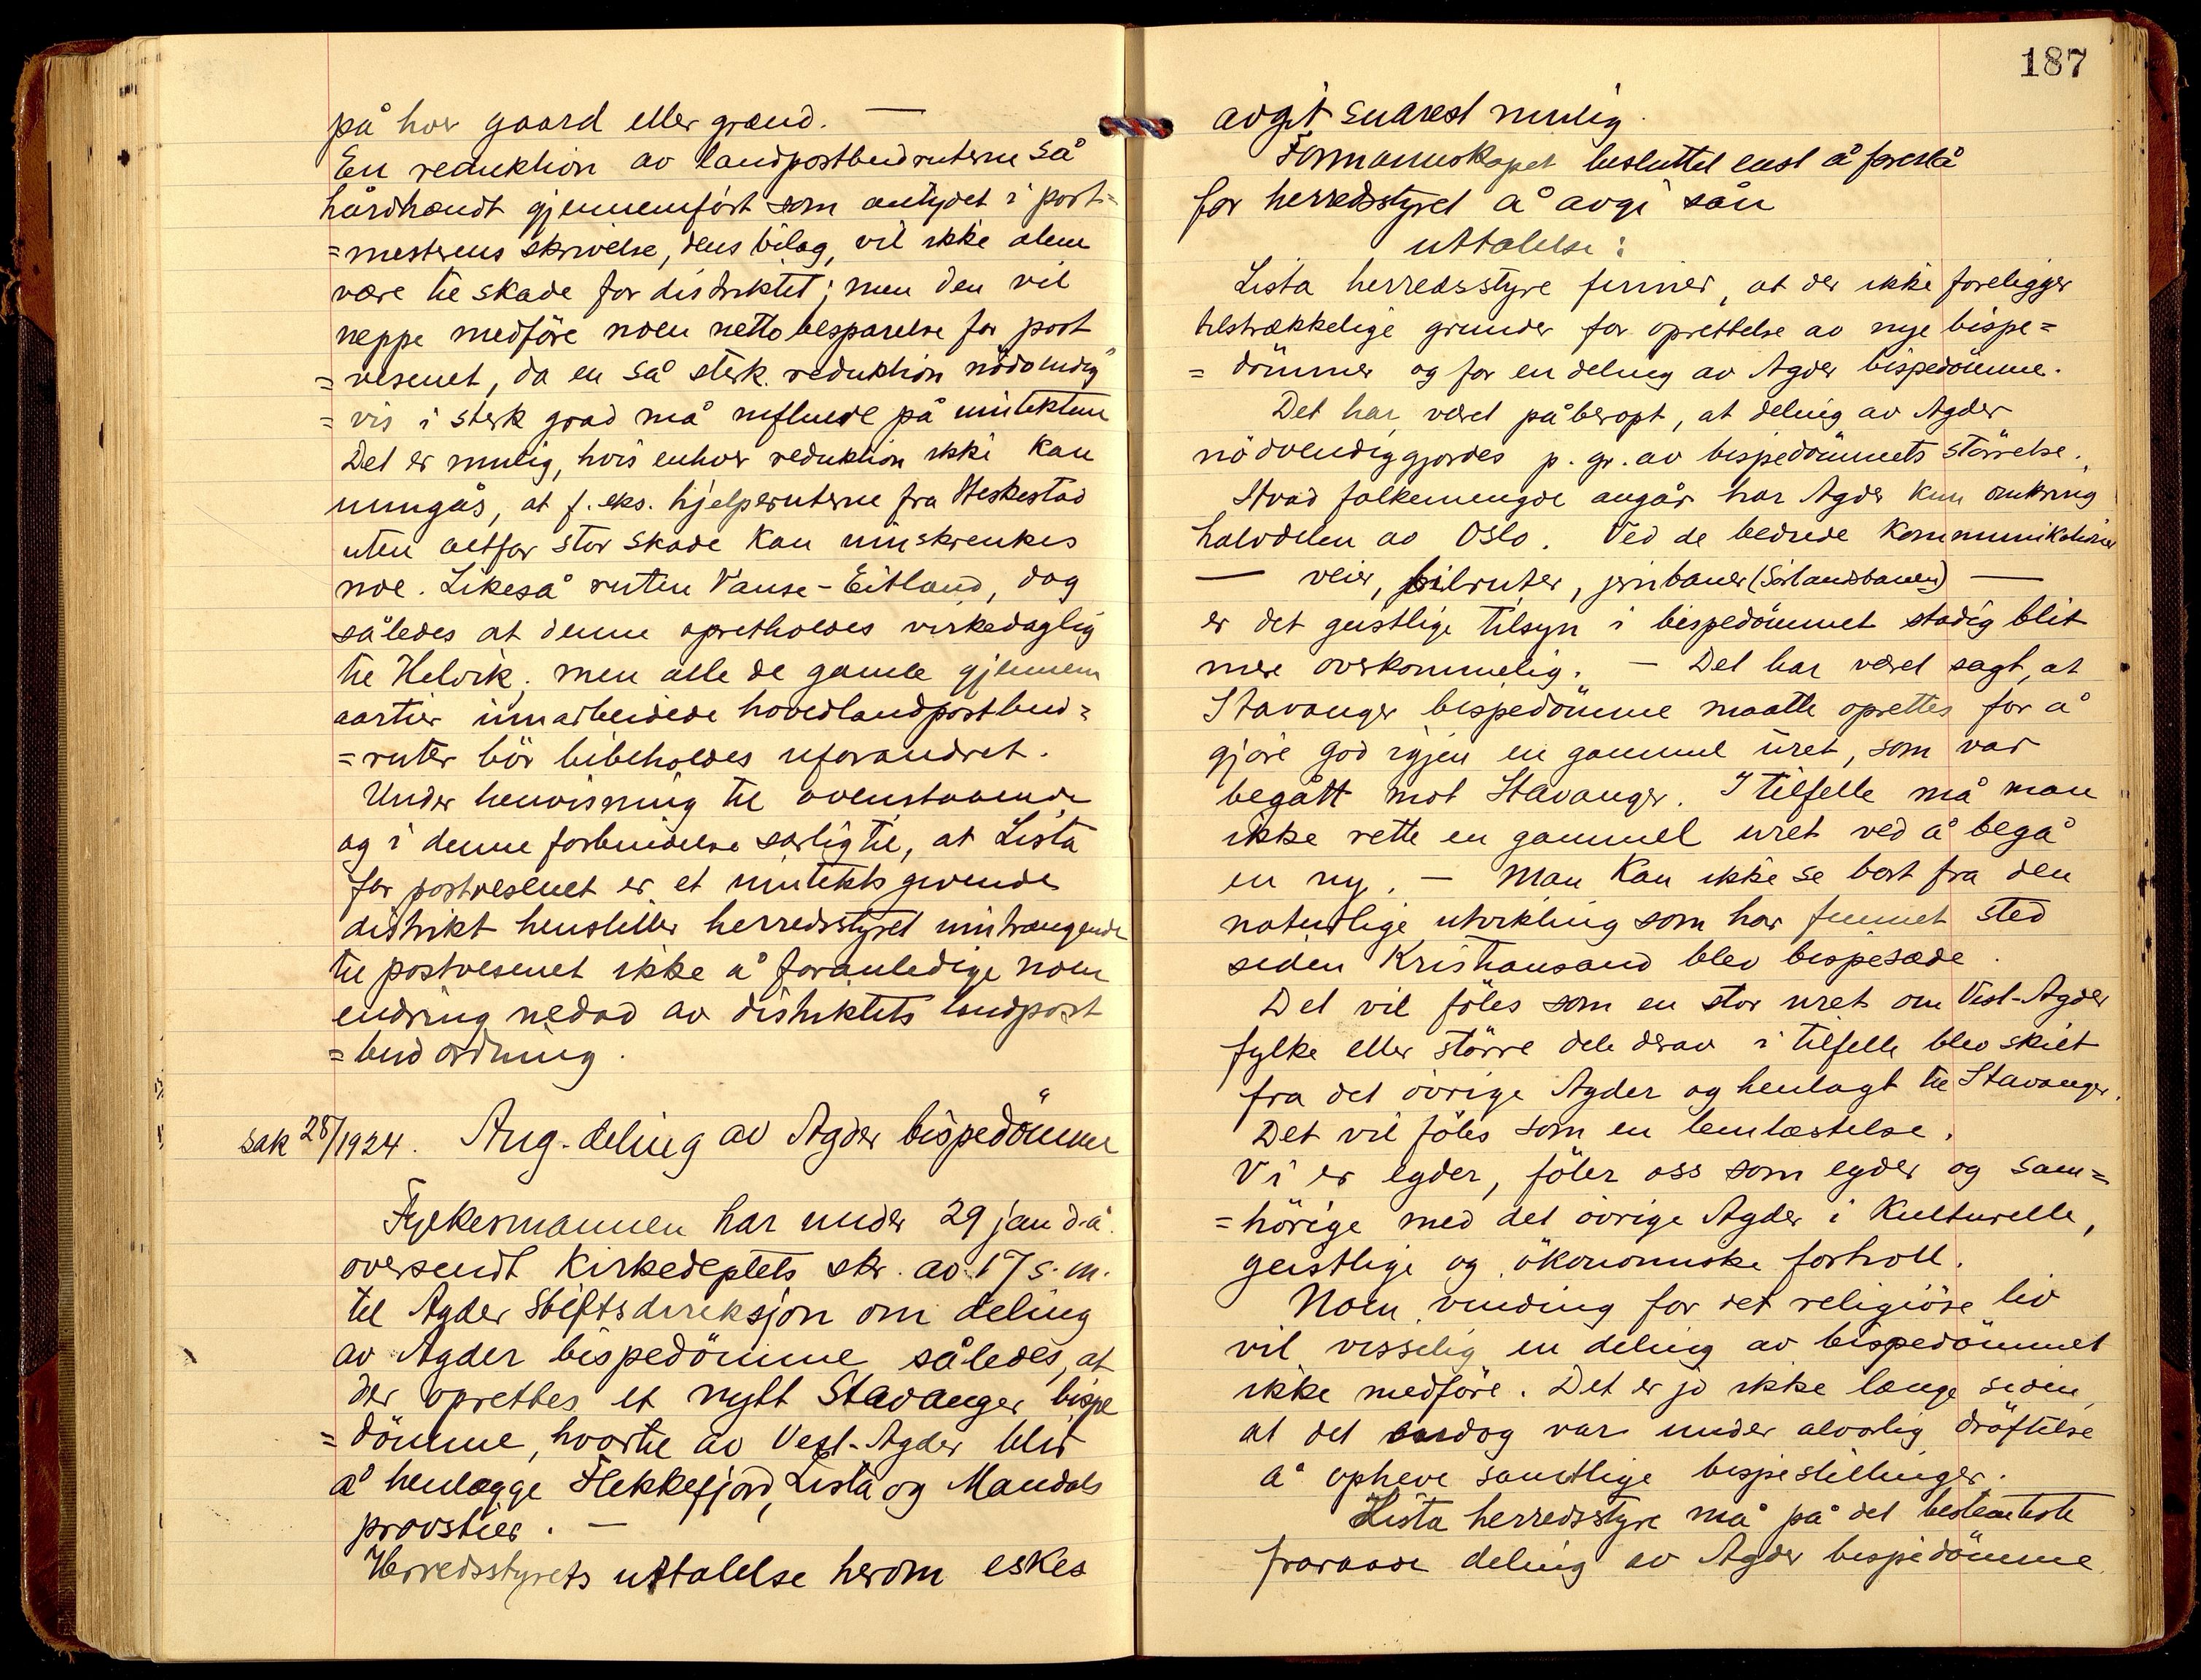 på hver gaard eller grænd. —
En reduktion av landpostbudruterne så
hårdhændt gjennemført som antydet i post=
=mesterens skrivelse, dens bilag, vil ikke alene
være til skade for distriktet; men den vil
neppe medføre noen netto besparelse for post
=vesenet, da en så sterk reduktion nödvendig
=vis i sterk grad må influere på inntektene
Det er mulig, hvis enhver reduktion ikke kan
unngås, at f. eks. hjelperuterne fra Heskestad
uten altfor stor skade kan innskrenkes
noe. Likeså ruten Vanse-Eitland, dog
således at denne opretholdes virkedaglig
til Helvik, men alle de gamle gjennem
aartier innarbeidede hovedlandpostbud=
=ruter bör bibeholdes uforandret.
Under henvisning til ovenstaaende
og i denne forbindelse særlig til, at Lista
for postvesenet er et inntektsgivende
distrikt henstiller herredsstyret inntrængende
til postvesenet ikke å foranledige noen
endring nedad av distriktets landpost
=budordning.
sak 28/1924. Ang. deling av Agder bispedömme
Fylkesmannen har under 29 jan d.å.
oversendt Kirkedeptets skr. av 17 s.m.
til Agder Stiftsdireksjon om deling
av Agder bispedömme således, at
der oprettes et nytt Stavanger bispe
=dömme, hvortil av Vest-Agder blir
å henlægge Flekkefjord, Lista og Mandals
provstier. —
Herredsstyrets uttalelse herom eskes
187
avgit snarest mulig.
Formannskapet besluttet enst å foreslå
for herredsstyret å avgi sån
uttalelse:
Lista herredsstyre finner, at der ikke foreligger
tilstrækkelige grunder for oprettelse av nye bispe=
=dömmer og for en deling av Agder bispedömme.
Det har været påberopt, at deling av Agder
nödvendiggjordes p. gr. av bispedömmets störrelse.
Hvad folkemengde angår har Agder kun omkring
halvdelen av Oslo. Ved de bedrede kommunikationer
— veier, bilruter, jernbaner (Sörlandsbanen) —
er det geistlige tilsyn i bispedömmet stadig blit
mere overkommelig. — Det har været sagt, at
Stavanger bispedömme maatte oprettes for å
gjöre god igjen en gammel uret, som var
begått mot Stavanger. I tilfelle må man
ikke rette en gammel uret ved å begå
en ny. — Man kan ikke se bort fra den
naturlige utvikling som har funnet sted
siden Kristiansand blev bispesæde.
Det vil föles som en stor uret om Vest-Agder
fylke eller större dele derav i tilfelle blev skilt
fra det övrige Agder og henlagt til Stavanger.
Det vil föles som en lemlæstelse.
Vi er egder, föler oss som egder og sam=
=hörige med det övrige Agder i kulturelle,
geistlige og ökonomiske forholl.
Noen vinding for det religiöse liv
vil visselig en deling av bispedömmet
ikke medföre. Det er jo ikke længe siden,
at det endog var under alvorlig dröftelse
å opheve samtlige bispestillinger.
Lista herredsstyre må på det bestemteste
fraraade deling av Agder bispedömme